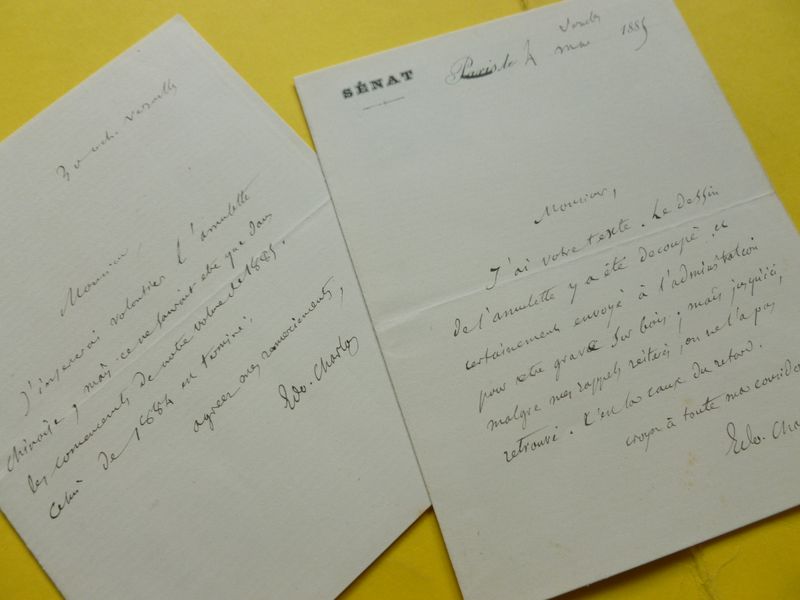 3 Versailles
Monsieur,
J'insérerai volontiers l'amulette
chinoise, mais ce ne saurait être que dans
les commencements de notre volume de 1885.
celui de 1884 est terminé.
agréer mes remerciements,
Edo. Charto
SÉNAT
Paris le 4 mai 1885
Monsieur,
J'ai votre texte. Le dessin
de l'amulette y a été découpé et
certainement envoyé à l'administration
pour être gravé sur bois ; mais jusqu'ici
malgré mes rappels réitérés, on ne l'a pas
retrouvé. C'est la cause du retard.
croyez à toute ma considé
Edo. Cha